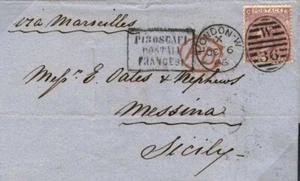 via Marseilles
PIROSCAFI
POSTALI
FRANCESI
LONDON-W
X
6
POSTAGE
W
36
Mess.rs E. Oates & Nephews
Messina
Sicily